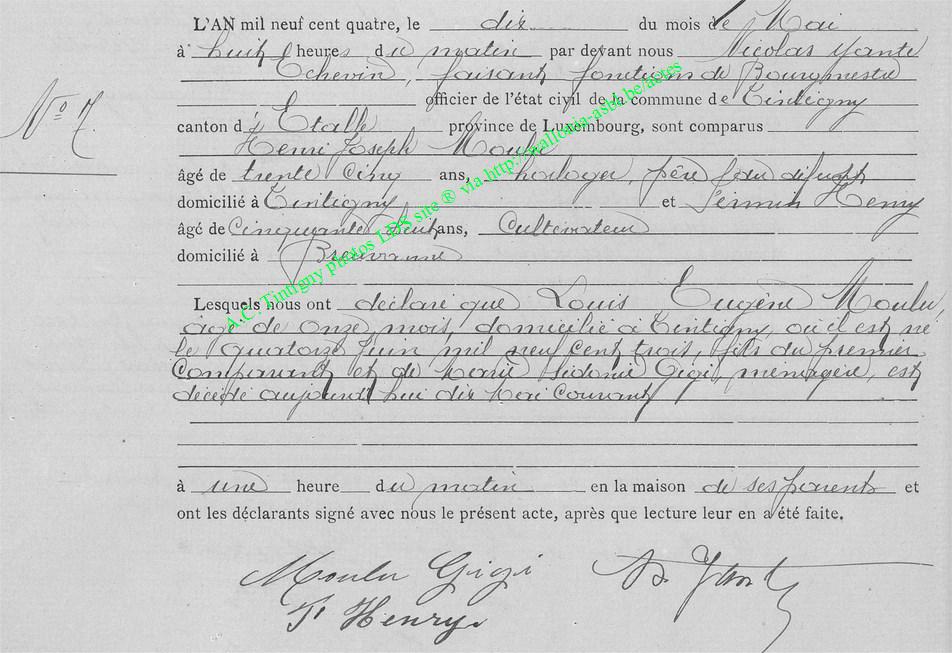 L'AN mil neuf cent quatre, le dix du mois de Mai
à huit heures du matin par devant nous Nicolas Yante
Echevin, faisant fonctions de Bourgmestre
officier de l'état civil de la commune de Tintigny
N° 7.
canton d'Etalle province de Luxembourg, sont comparus
Henri Joseph Moulu
âgé de trente cinq ans, horloger, père du défunt
domicilié à Tintigny et Firmin Henry
âgé de Cinquante huit ans, Cultivateur
domicilié à Breuvanne
Lesquels nous ont déclaré que Louis Eugène Moulu,
âgé de onze mois, domicilié à Tintigny, où il est né
le quatorze Juin mil neuf cent trois, fils du premier
Comparant et de Marie Sidonie Gigi, ménagère, est
décédé aujourd'hui dix Mai Courant
à une heure du matin en la maison de ses parents et
ont les déclarants signé avec nous le présent acte, après que lecture leur en a été faite.
Moulu Gigi
F Henry
A.C. Tintigny photos LDS site ® via http://wallonia-asbl.be/actes